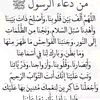 من دعاء الرسول ﷺ
اللهم ألف بين قلوبنا، وأصلح ذات بيننا
واهدنا سبل السلام، ونجنا من الظلمات
إلى النور، وجنبنا الفواحش ما ظهر
منها وما بطن، وبارك لنا في أسماعنا
وأبصارنا وقلوبنا وأزواجنا وذرياتنا
وتب علينا إنك أنت التواب الرحيم
واجعلنا شاكرين لنعمتك